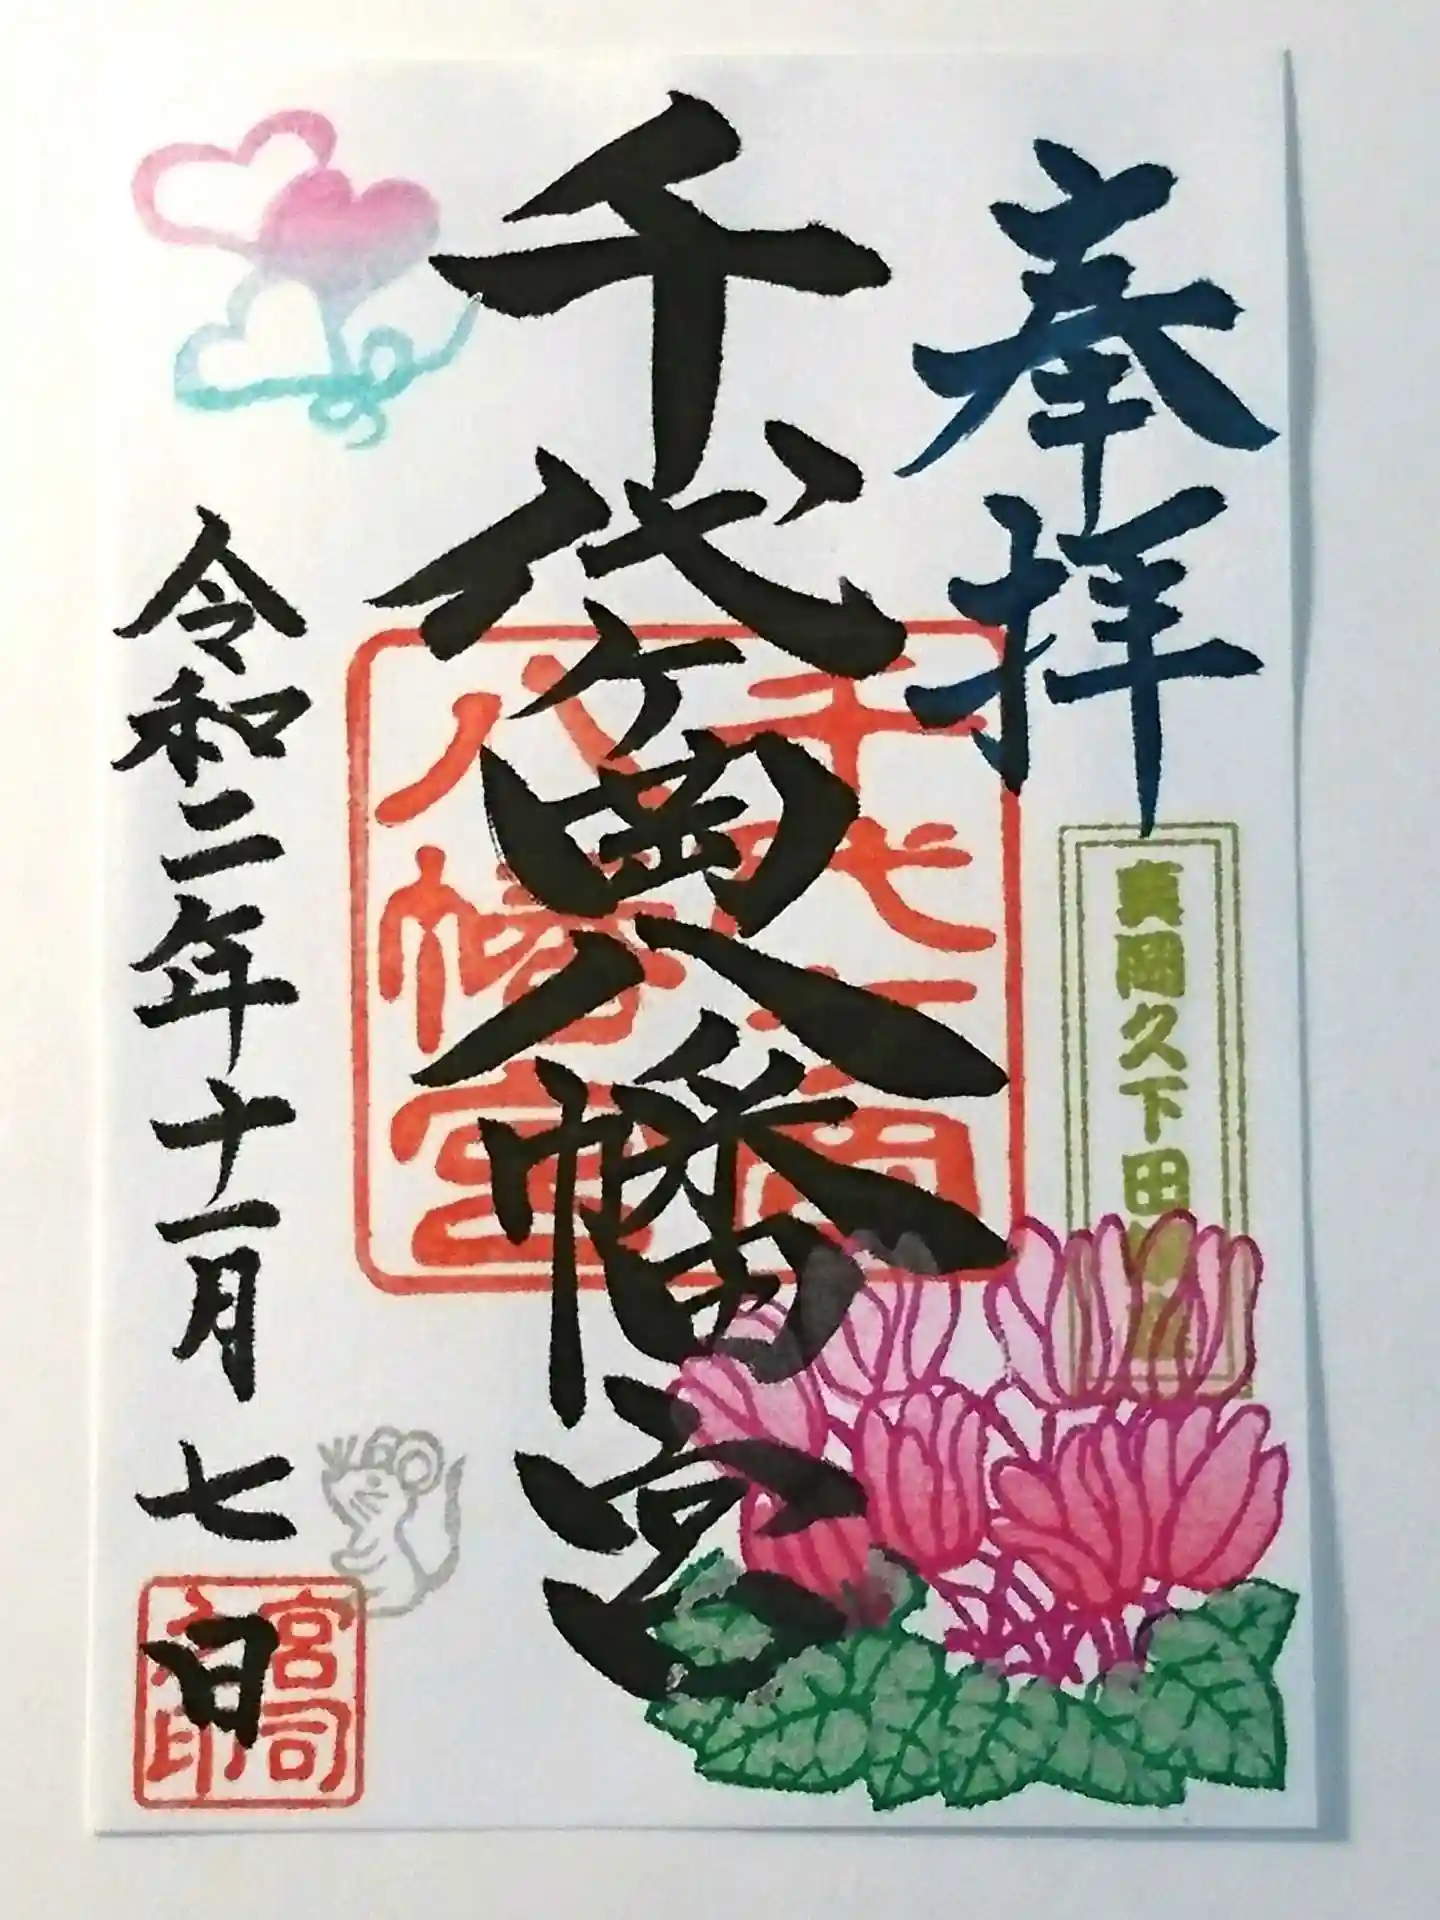 奉拝
真岡久下田
千代ヶ岡八幡宮
千代ヶ岡八幡宮
令和二年十一月七日
宮司之印